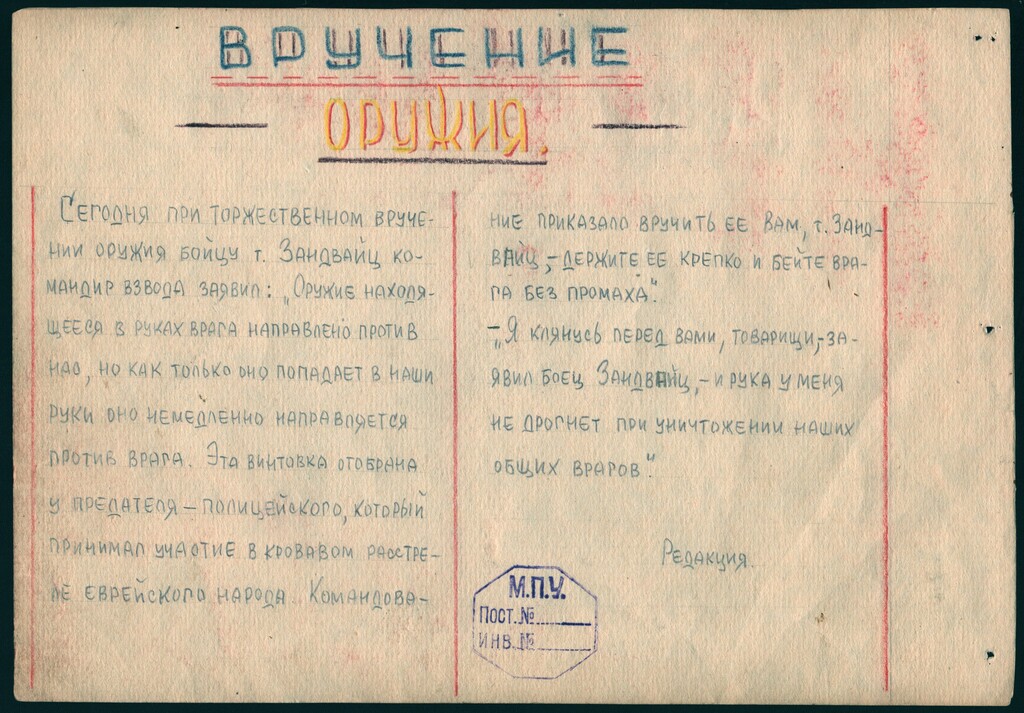 ВРУЧЕНИЕ
ОРУЖИЯ.
Сегодня при торжественном вруче-
нии оружия бойцу т. Зандвайц ко-
мандир взвода заявил: „Оружие находя-
щееся в руках врага направлено против
нас, но как только оно попадает в наши
руки оно немедленно направляется
против врага. Эта винтовка отобрана
у предателя – полицейского, который
принимал участие в кровавом расстре-
ле еврейского народа. Командова-
ние приказало вручить ее Вам, т. Занд-
вайц, – держите ее крепко и бейте вра-
га без промаха".
– „Я клянусь перед вами, товарищи, – за-
явил боец Зандвайц, – и рука у меня
не дрогнет при уничтожении наших
общих врагов".
Редакция.
М.П.У.
Пост. №
ИНВ. №